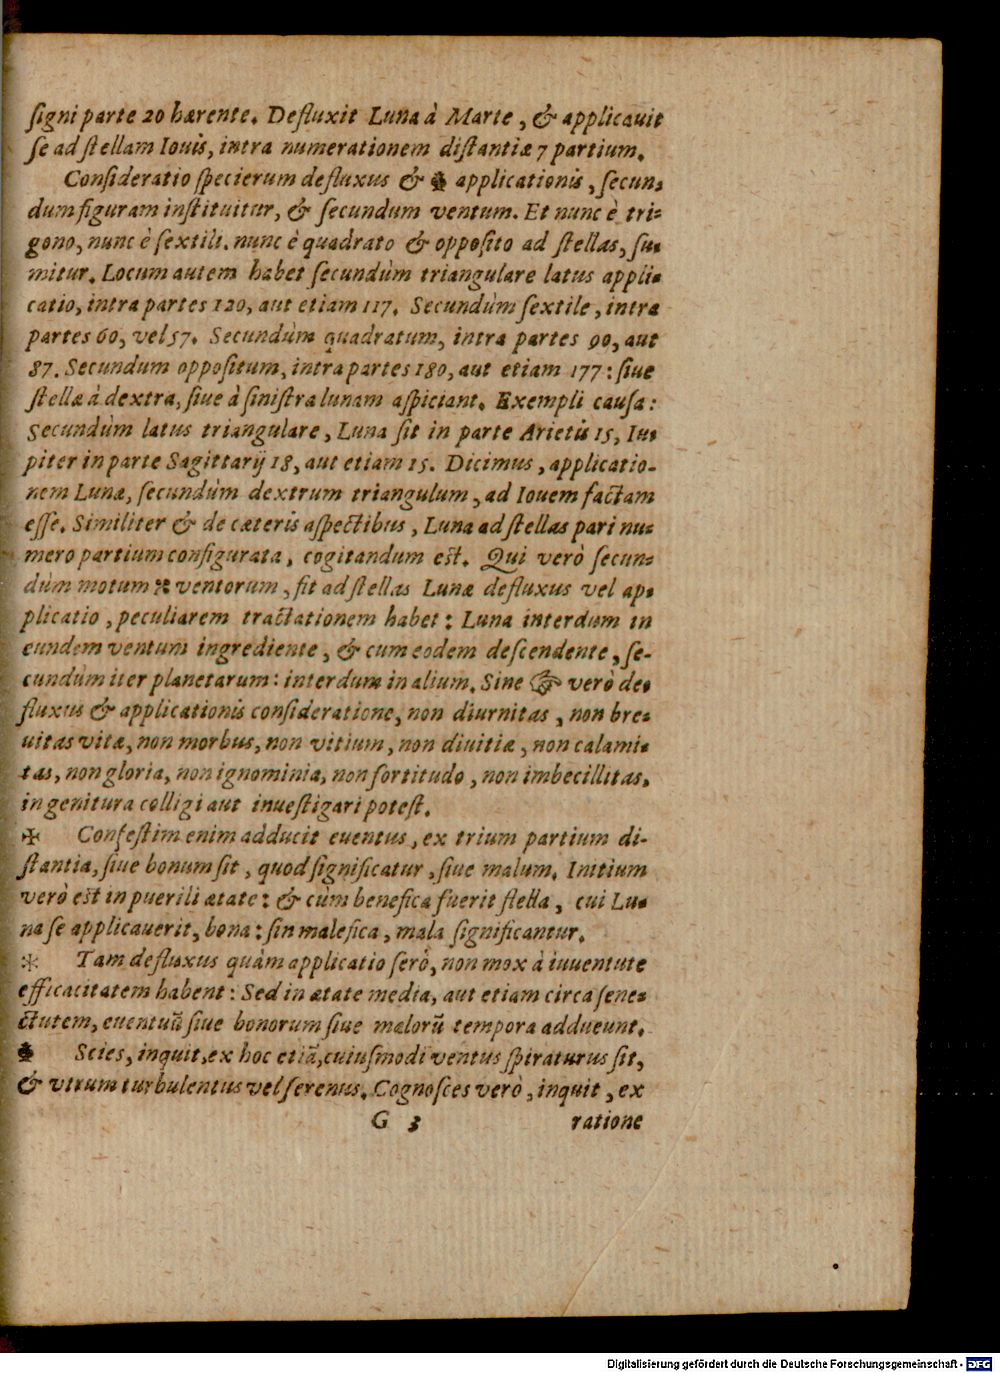 ſigni parte 20 hærente. Defluxit Luna à Marte, & applicauit
ſe ad ſtellam Iouis, intra numerationem diſtantiæ 7 partium.
Conſideratio ſpecierum defluxus & applicationis, ſecun-
dum figuram inſtituitur, & ſecundum ventum. Et nunc è tri-
gono, nunc è ſextili. nunc è quadrato & oppoſito ad ſtellas, ſu-
mitur. Locum autem habet ſecundùm triangulare latus appli-
catio, intra partes 120, aut etiam 117. Secundùm ſextile, intra
partes 60, vel 57. Secundùm quadratum, intra partes 90, aut
87. Secundum oppoſitum, intra partes 180, aut etiam 177: ſiue
ſtellæ à dextra, ſiue à ſiniſtra lunam aſpiciant. Exempli cauſa:
Secundùm latus triangulare, Luna ſit in parte Arietis 15, Iu-
piter in parte Sagittarij 18, aut etiam 15. Dicimus, applicatio-
nem Lunæ, ſecundùm dextrum triangulum, ad Iouem factam
eſſe. Similiter & de cæteris aſpectibus, Luna ad ſtellas pari nu-
mero partium configurata, cogitandum eſt. Qui verò ſecun-
dùm motum ventorum, fit ad ſtellas Lunæ defluxus vel ap-
plicatio, peculiarem tractationem habet: Luna interdum in
eundem ventum ingrediente, & cum eodem deſcendente, ſe-
cundùm iter planetarum: interdum in alium. Sine ☞ verò de-
fluxus & applicationis conſideratione, non diurnitas, non bre-
uitas vitæ, non morbus, non vitium, non diuitiæ, non calami-
tas, non gloria, non ignominia, non fortitudo, non imbecillitas,
in genitura colligi aut inueſtigari poteſt.
✠ Confeſtim enim adducit euentus, ex trium partium di-
ſtantia, ſiue bonum ſit, quod ſignificatur, ſiue malum. Initium
verò eſt in puerili ætate: & cùm benefica fuerit ſtella, cui Lu-
na ſe applicauerit, bona: ſin malefica, mala ſignificantur.
* Tam defluxus quàm applicatio ſerò, non mox à iuuentute
efficacitatem habent: Sed in ætate media, aut etiam circa ſene-
ctutem, euentuũ ſiue bonorum ſiue malorũ tempora adducunt.
Scies, inquit, ex hoc etiã, cuiuſmodi ventus ſpiraturus ſit,
& vtrum turbulentus vel ſerenus. Cognoſces verò, inquit, ex
G 3 ratione
Digitalisierung gefördert durch die Deutsche Forschungsgemeinschaft - DFG